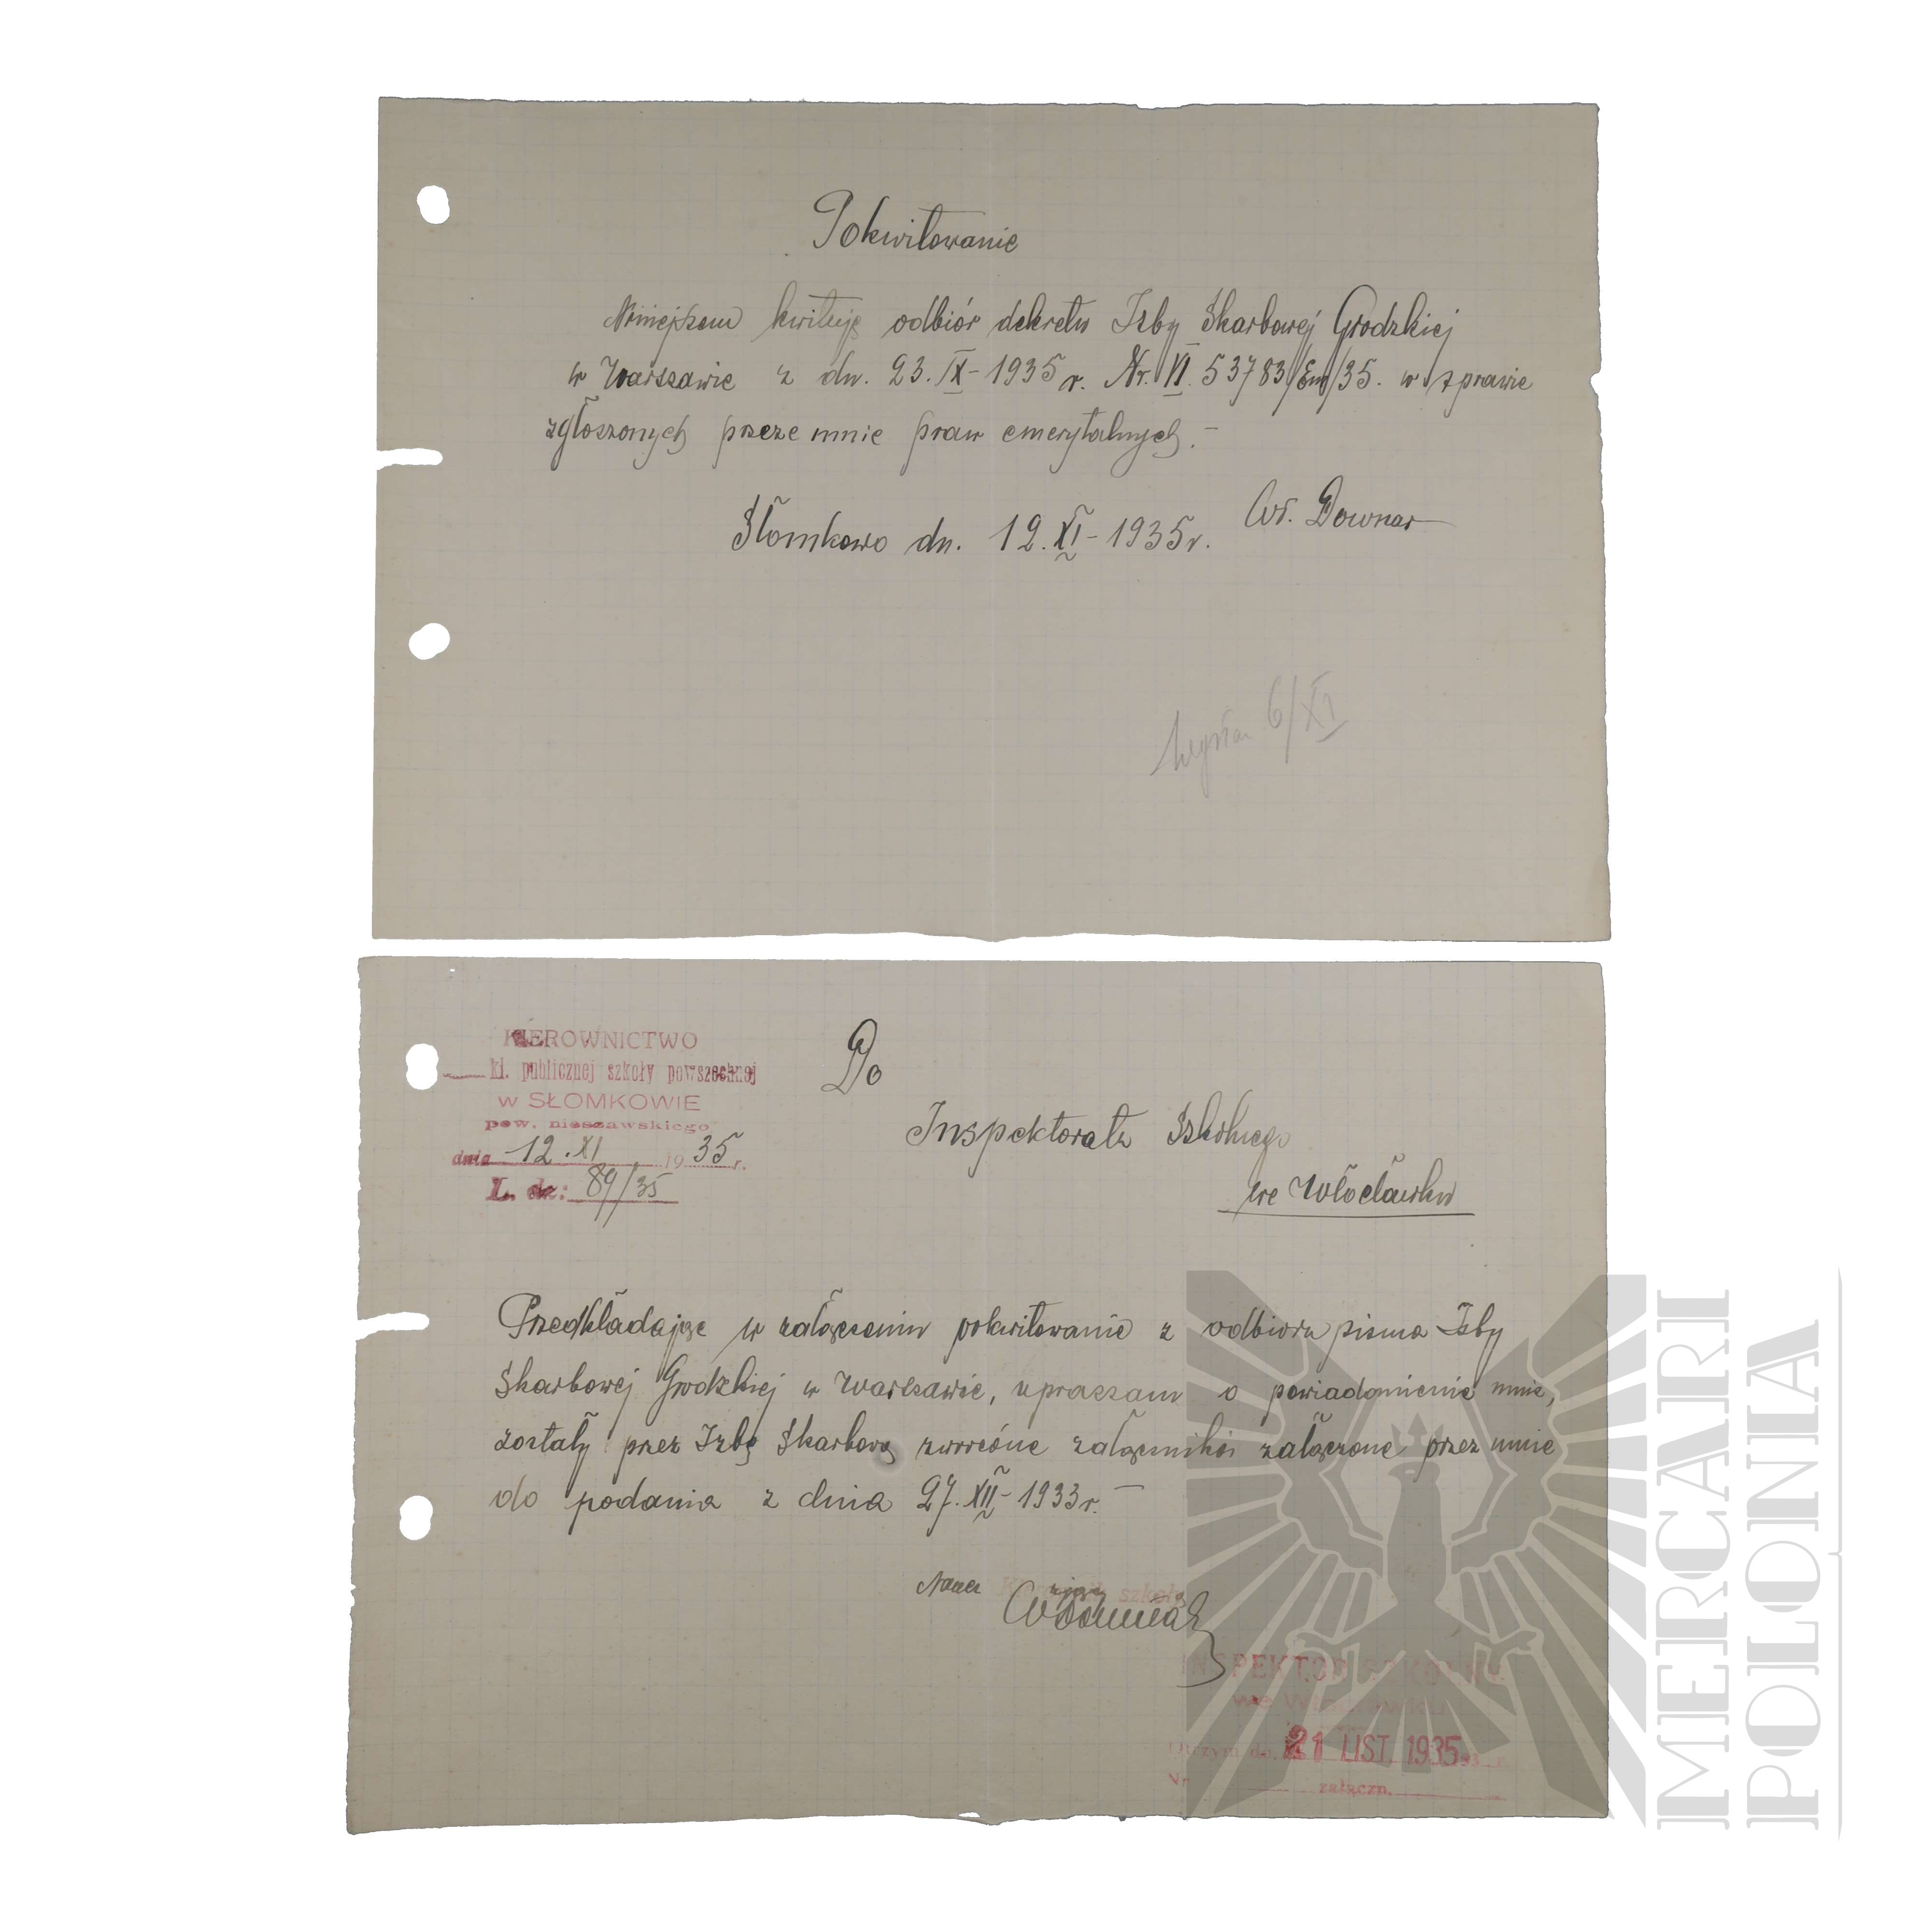 Pokwitowanie
Niniejszem kwituję odbiór dekretu Izby Skarbowej Grodzkiej
w Warszawie z dn. 23.IX-1935 r. Nr. VI. 53783/Em/35. w sprawie
zgłoszonych przeze mnie praw emerytalnych.-
Wł. Downar
Słomkowo dn. 12.XI-1935 r.
6/XI
KIEROWNICTWO
kl. publicznej szkoły powszechnej
w SŁOMKOWIE
pow. nieszawskiego
dnia 12.XI 1935 r.
L. dz: 89/35
Do
Inspektoratu Szkolnego
we Włocławku
Przedkładając w załączeniu pokwitowanie z odbioru pisma Izby
Skarbowej Grodzkiej w Warszawie, upraszam o powiadomienie mnie,
zostały przez Izbę Skarbową zwrócone załączniki załączone przez mnie
do podania z dnia 27.XII-1933 r.-
szkoły
INSPEKTOR SZKOLNY
we Włocławku
Otrzym. dn. 21 LIST. 1935 193 r.
Nr. załączn.
MERCARI
POLONIA